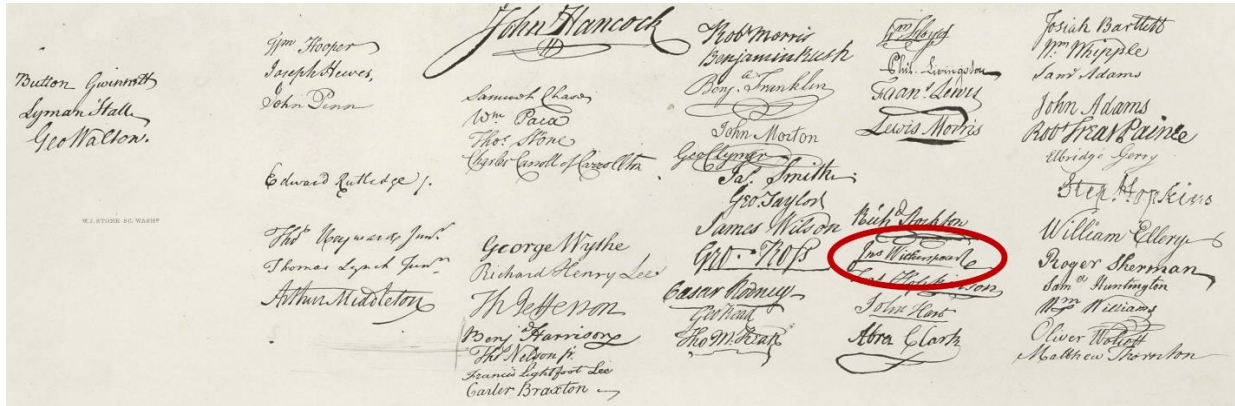 Button Gwinnett
Lyman Hall
Geo Walton.
W.J. STONE SC. WASHN
Wm Hooper
Joseph Hewes,
John Penn
Edward Rutledge /.
Thos Heyward Junr.
Thomas Lynch Junr.
Arthur Middleton
John Hancock
Samuel Chase
Wm Paca
Thos. Stone
Charles Carroll of Carrollton
George Wythe
Richard Henry Lee
Th Jefferson
Benja Harrison
Thos Nelson jr.
Francis Lightfoot Lee
Carter Braxton
Robt Morris
Benjamin Rush
Benja. Franklin
John Morton
Geo Clymer
Jas. Smith
Geo. Taylor
James Wilson
Geo. Ross
Caesar Rodney
Geo Read
Tho M:Kean
Wm Floyd
Phil. Livingston
Frans. Lewis
Lewis Morris
Richd. Stockton
Jno Witherspoon
Fras. Hopkinson
John Hart
Abra Clark
Josiah Bartlett
Wm. Whipple
Saml Adams
John Adams
Robt Treat Paine
Elbridge Gerry
Step. Hopkins
William Ellery
Roger Sherman
Saml Huntington
Wm Williams
Oliver Wolcott
Matthew Thornton